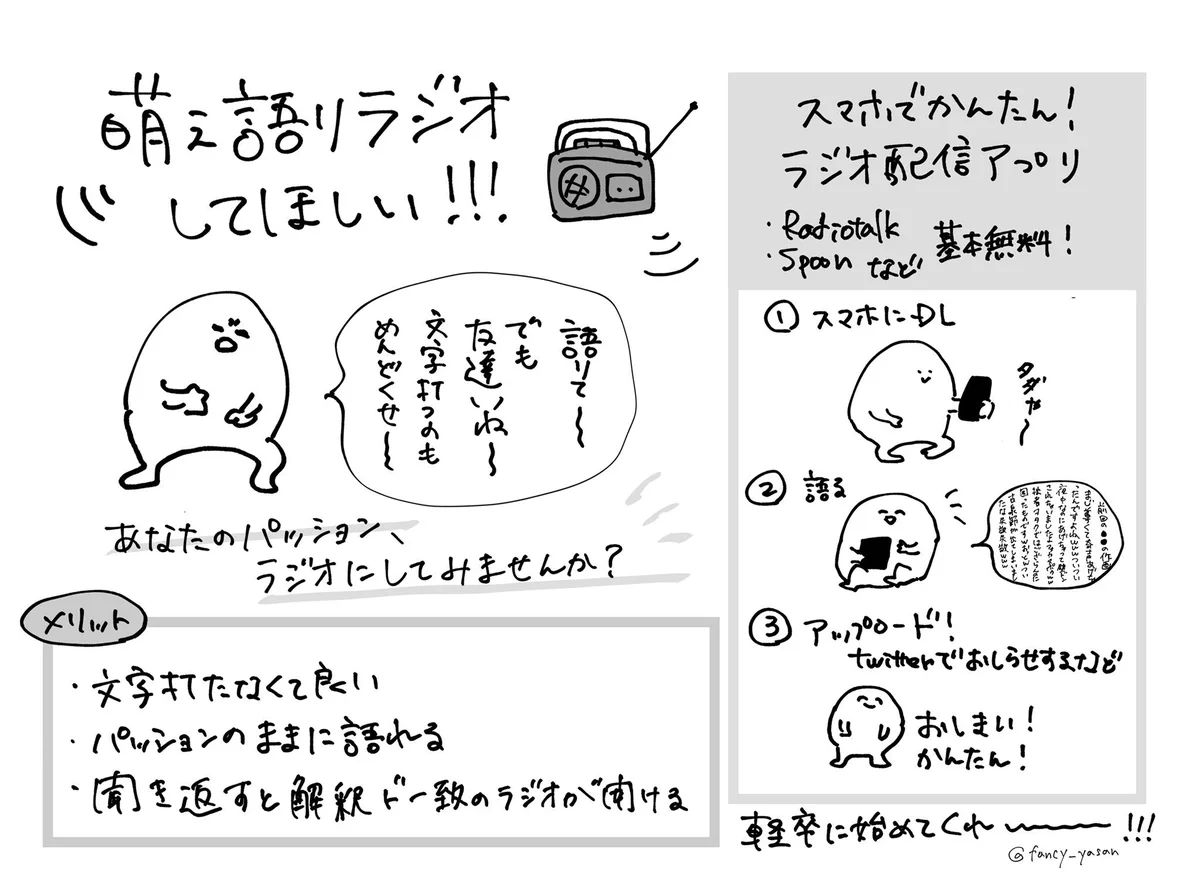 萌え語りラジオ
してほしい!!!
語りて〜
でも
友達いね〜
文字打つのも
めんどくせ〜
あなたのパッション、
ラジオにしてみませんか?
メリット
・文字打たなくて良い
・パッションのままに語れる
・聞き返すと解釈ド一致のラジオが聞ける
スマホでかんたん!
ラジオ配信アプリ
・Radiotalk
・Spoon など
基本無料!
① スマホにDL
タダや〜
② 語る
前回の●●の作画
③ アップロード!
twitterでおしらせするなど
おしまい!
かんたん!
軽率に始めてくれ〜!!!
@fancy_yasan